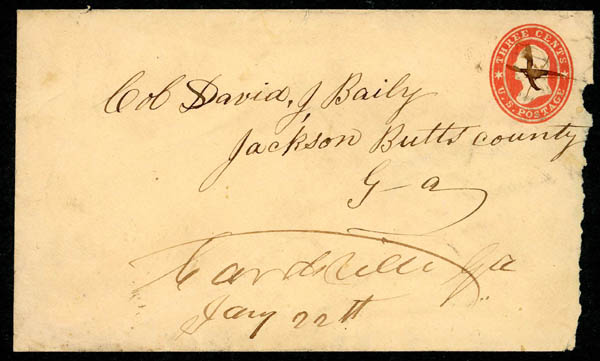 THREE CENTS
U.S. POSTAGE
Col David, J Baily
Jackson Butts county
G-a
Cardsville Ga
Jany 22th